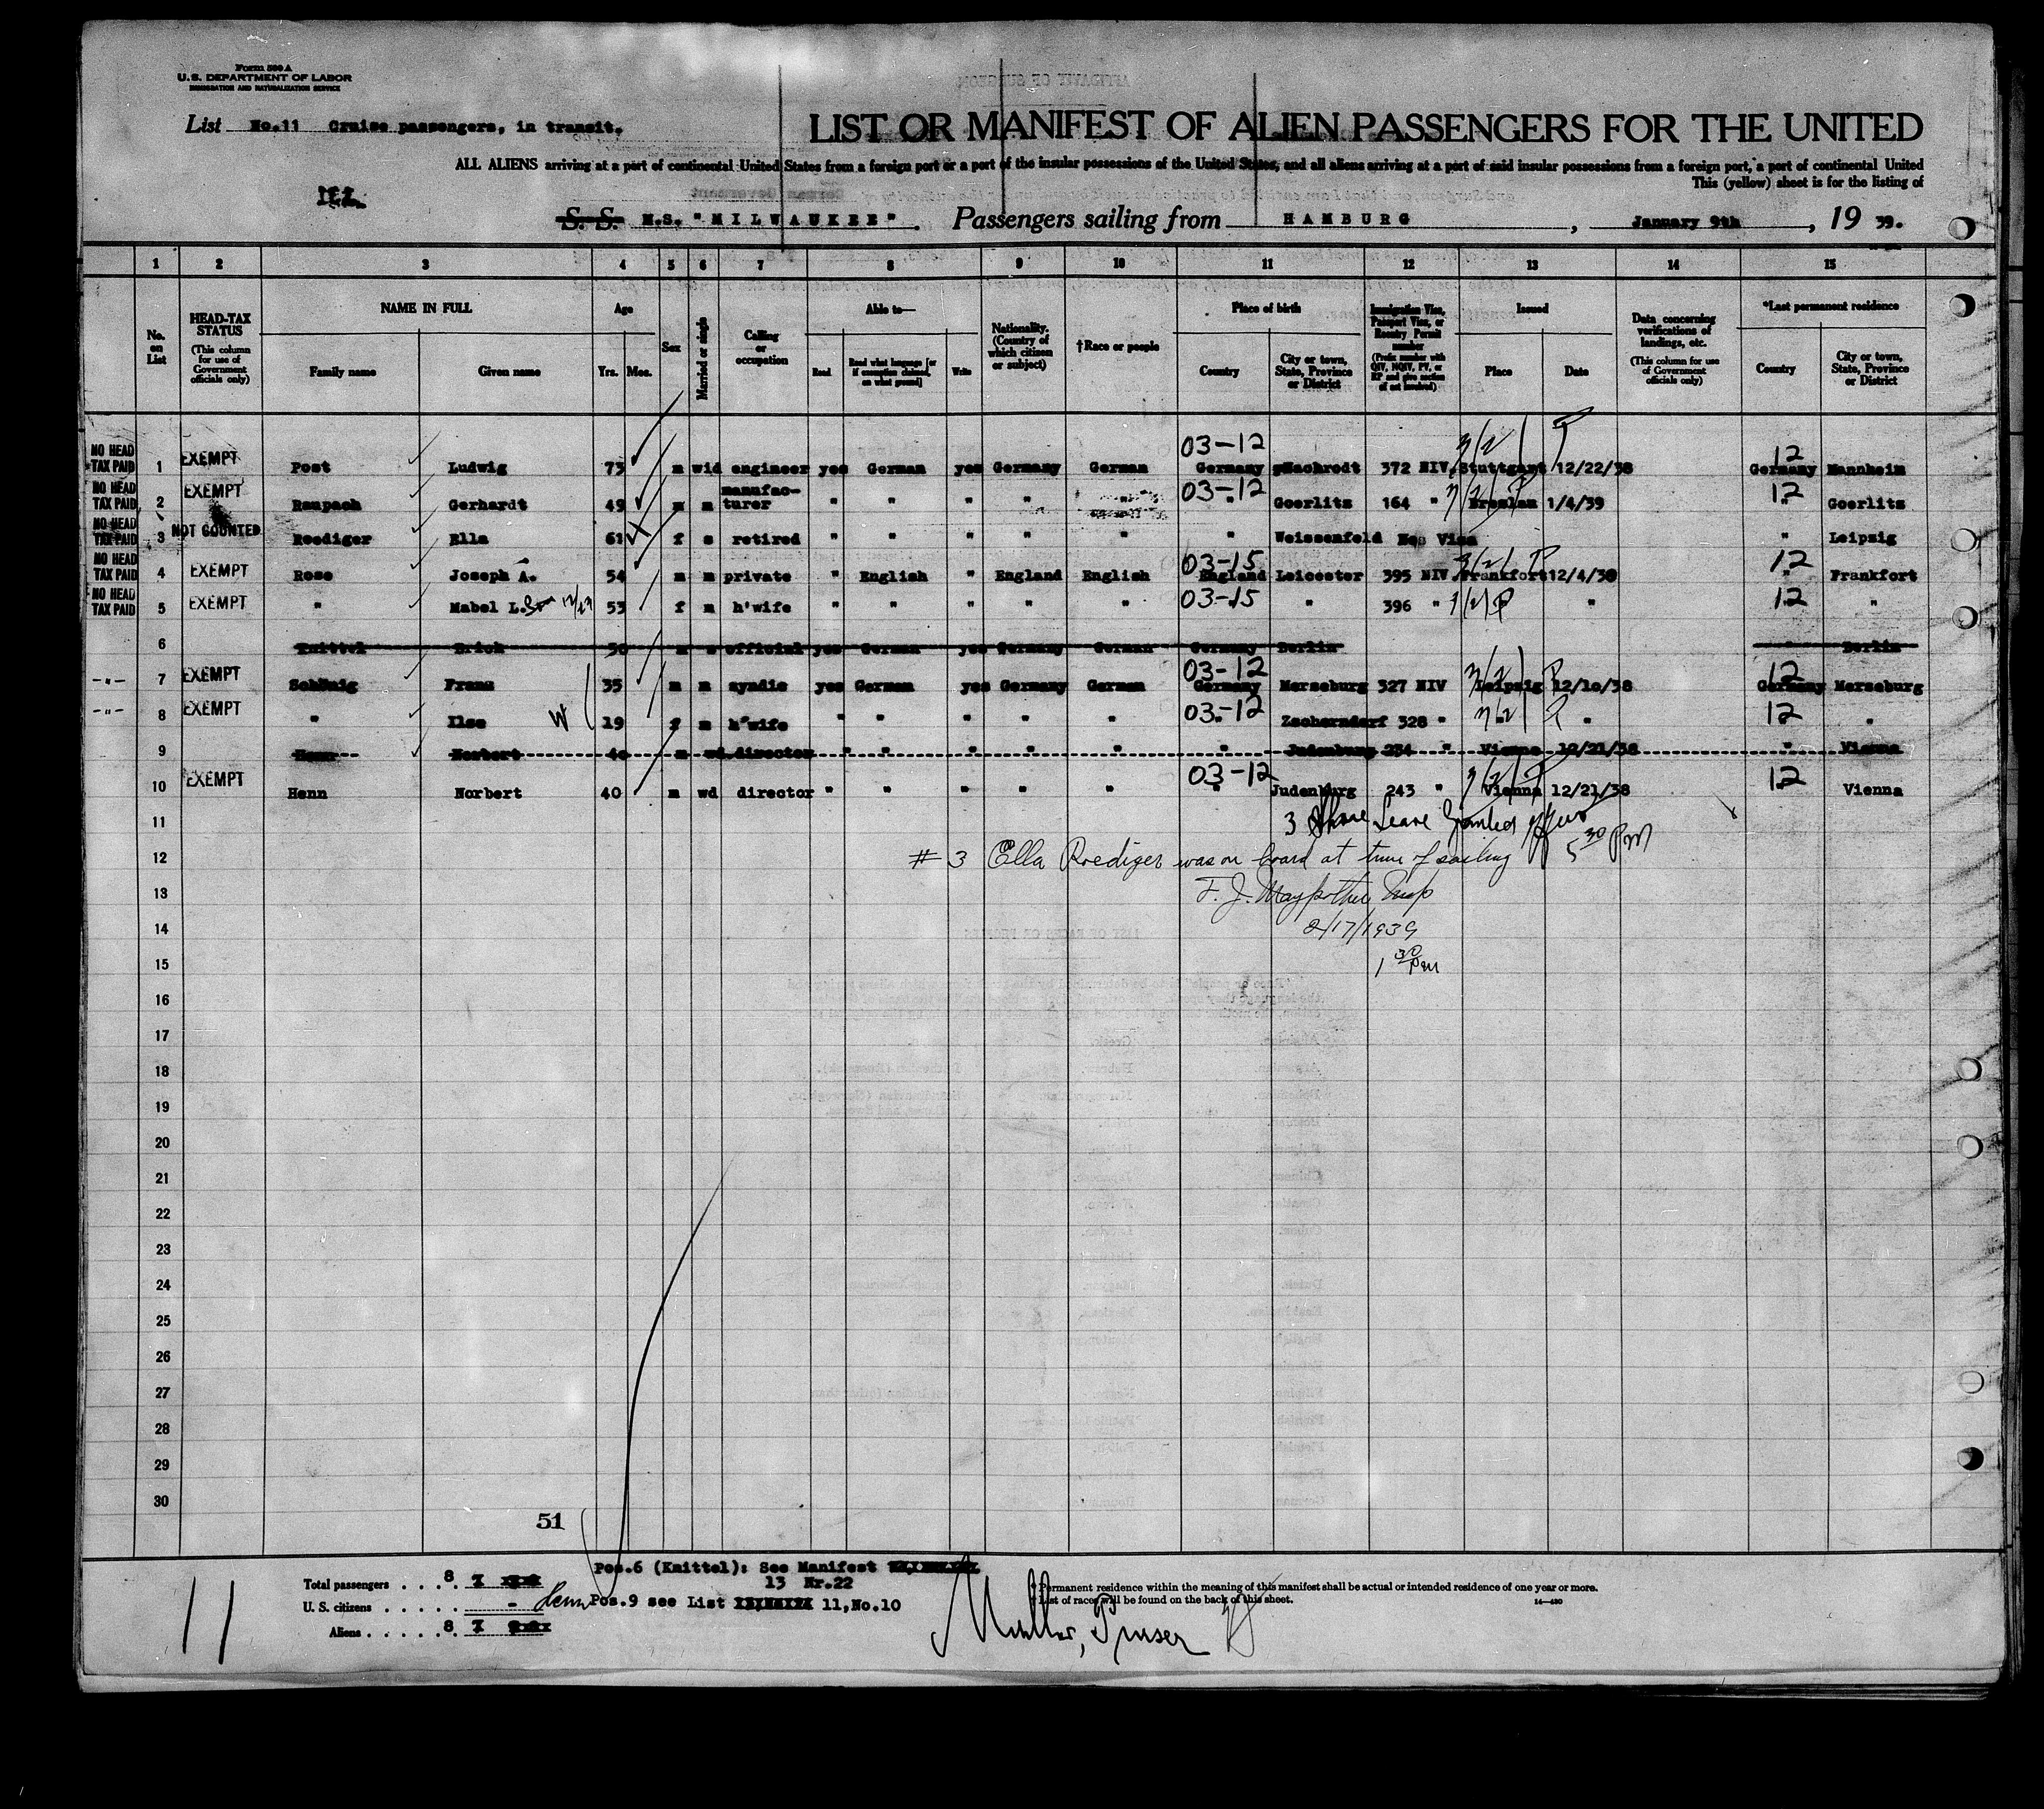 Form 500 A
U.S. DEPARTMENT OF LABOR
IMMIGRATION AND NATURALIZATION SERVICE
List No.11 Cruise passengers, in transit.
LIST OR MANIFEST OF ALIEN PASSENGERS FOR THE UNITED
ALL ALIENS arriving at a port of continental United States from a foreign port or a port of the insular possessions of the United States, and all aliens arriving at a port of said insular possessions from a foreign port, a port of continental United
This (yellow) sheet is for the listing of
S. S. M.S. "MILWAUKEE". Passengers sailing from HAMBURG, January 9th, 19 39.
1 2 3 4 5 6 7 8 9 10 11 12 13 14 15
No. on List
HEAD-TAX STATUS (This column for use of Government officials only)
NAME IN FULL Family name Given name
Age Yrs. Mos.
Sex
Married or single
Calling or occupation
Able to— Read Read what language [or if exemption claimed, on what ground] Write
Nationality. (Country of which citizen or subject)
†Race or people
Place of birth Country City or town, State, Province or District
Immigration Visa, Passport Visa, or Reentry Permit number (Prefix number with QIV, NQIV, PV, or RP and give section of act involved)
Issued Place Date
Data concerning verifications of landings, etc. (This column for use of Government officials only)
*Last permanent residence Country City or town, State, Province or District
03-12 12
NO HEAD TAX PAID 1 EXEMPT Post Ludwig 73 m wid engineer yes German yes Germany German Germany Nachrodt 372 NIV Stuttgart 12/22/38 Germany Mannheim
03-12 12
NO HEAD TAX PAID 2 EXEMPT Raupach Gerhardt 49 m m manufacturer " " " " " " Goerlitz 164 " Breslau 1/4/39 " Goerlitz
NO HEAD TAX PAID 3 NOT COUNTED Roediger Ella 61 f s retired " " " " " " Weissenfeld No Visa " Leipzig
03-15 12
NO HEAD TAX PAID 4 EXEMPT Rose Joseph A. 54 m m private " English " England English England Leicester 395 NIV Frankfort 12/4/38 " Frankfort
03-15 12
NO HEAD TAX PAID 5 EXEMPT " Mabel L. 53 f m h'wife " " " " " " " 396 " " " "
6 Knittel Erich 50 m s official yes German yes Germany German Germany Berlin " Berlin
03-12 12
-"- 7 EXEMPT Schönig Franz 35 m m syndic yes German yes Germany German Germany Merseburg 327 NIV Leipzig 12/10/38 Germany Merseburg
03-12 12
-"- 8 EXEMPT " Ilse W 19 f m h'wife " " " " " " Zscherndorf 328 " " " " "
9 Henn Norbert 40 m wd. director " " " " " " Judenburg 234 " Vienna 12/21/38 " Vienna
03-12 12
10 EXEMPT Henn Norbert 40 m wd director " " " " " " Judenburg 243 " Vienna 12/21/38 " Vienna
11 3 Shore Leave Granted 5 30 PM
12 # 3 Ella Roediger was on board at time of sailing
13 F. J. Maypother Insp
14 2/17/1939
15 1 30 pm
16
17
18
19
20
21
22
23
24
25
26
27
28
29
30
51
11
Total passengers . . . 8 7
U. S. citizens . . . . . -
Aliens . . . . . 8 7
Pos.6 (Knittel): See Manifest
13 Nr.22
Henn Pos.9 see List 11,No.10
* Permanent residence within the meaning of this manifest shall be actual or intended residence of one year or more.
† List of races will be found on the back of this sheet.
14—430
Purser